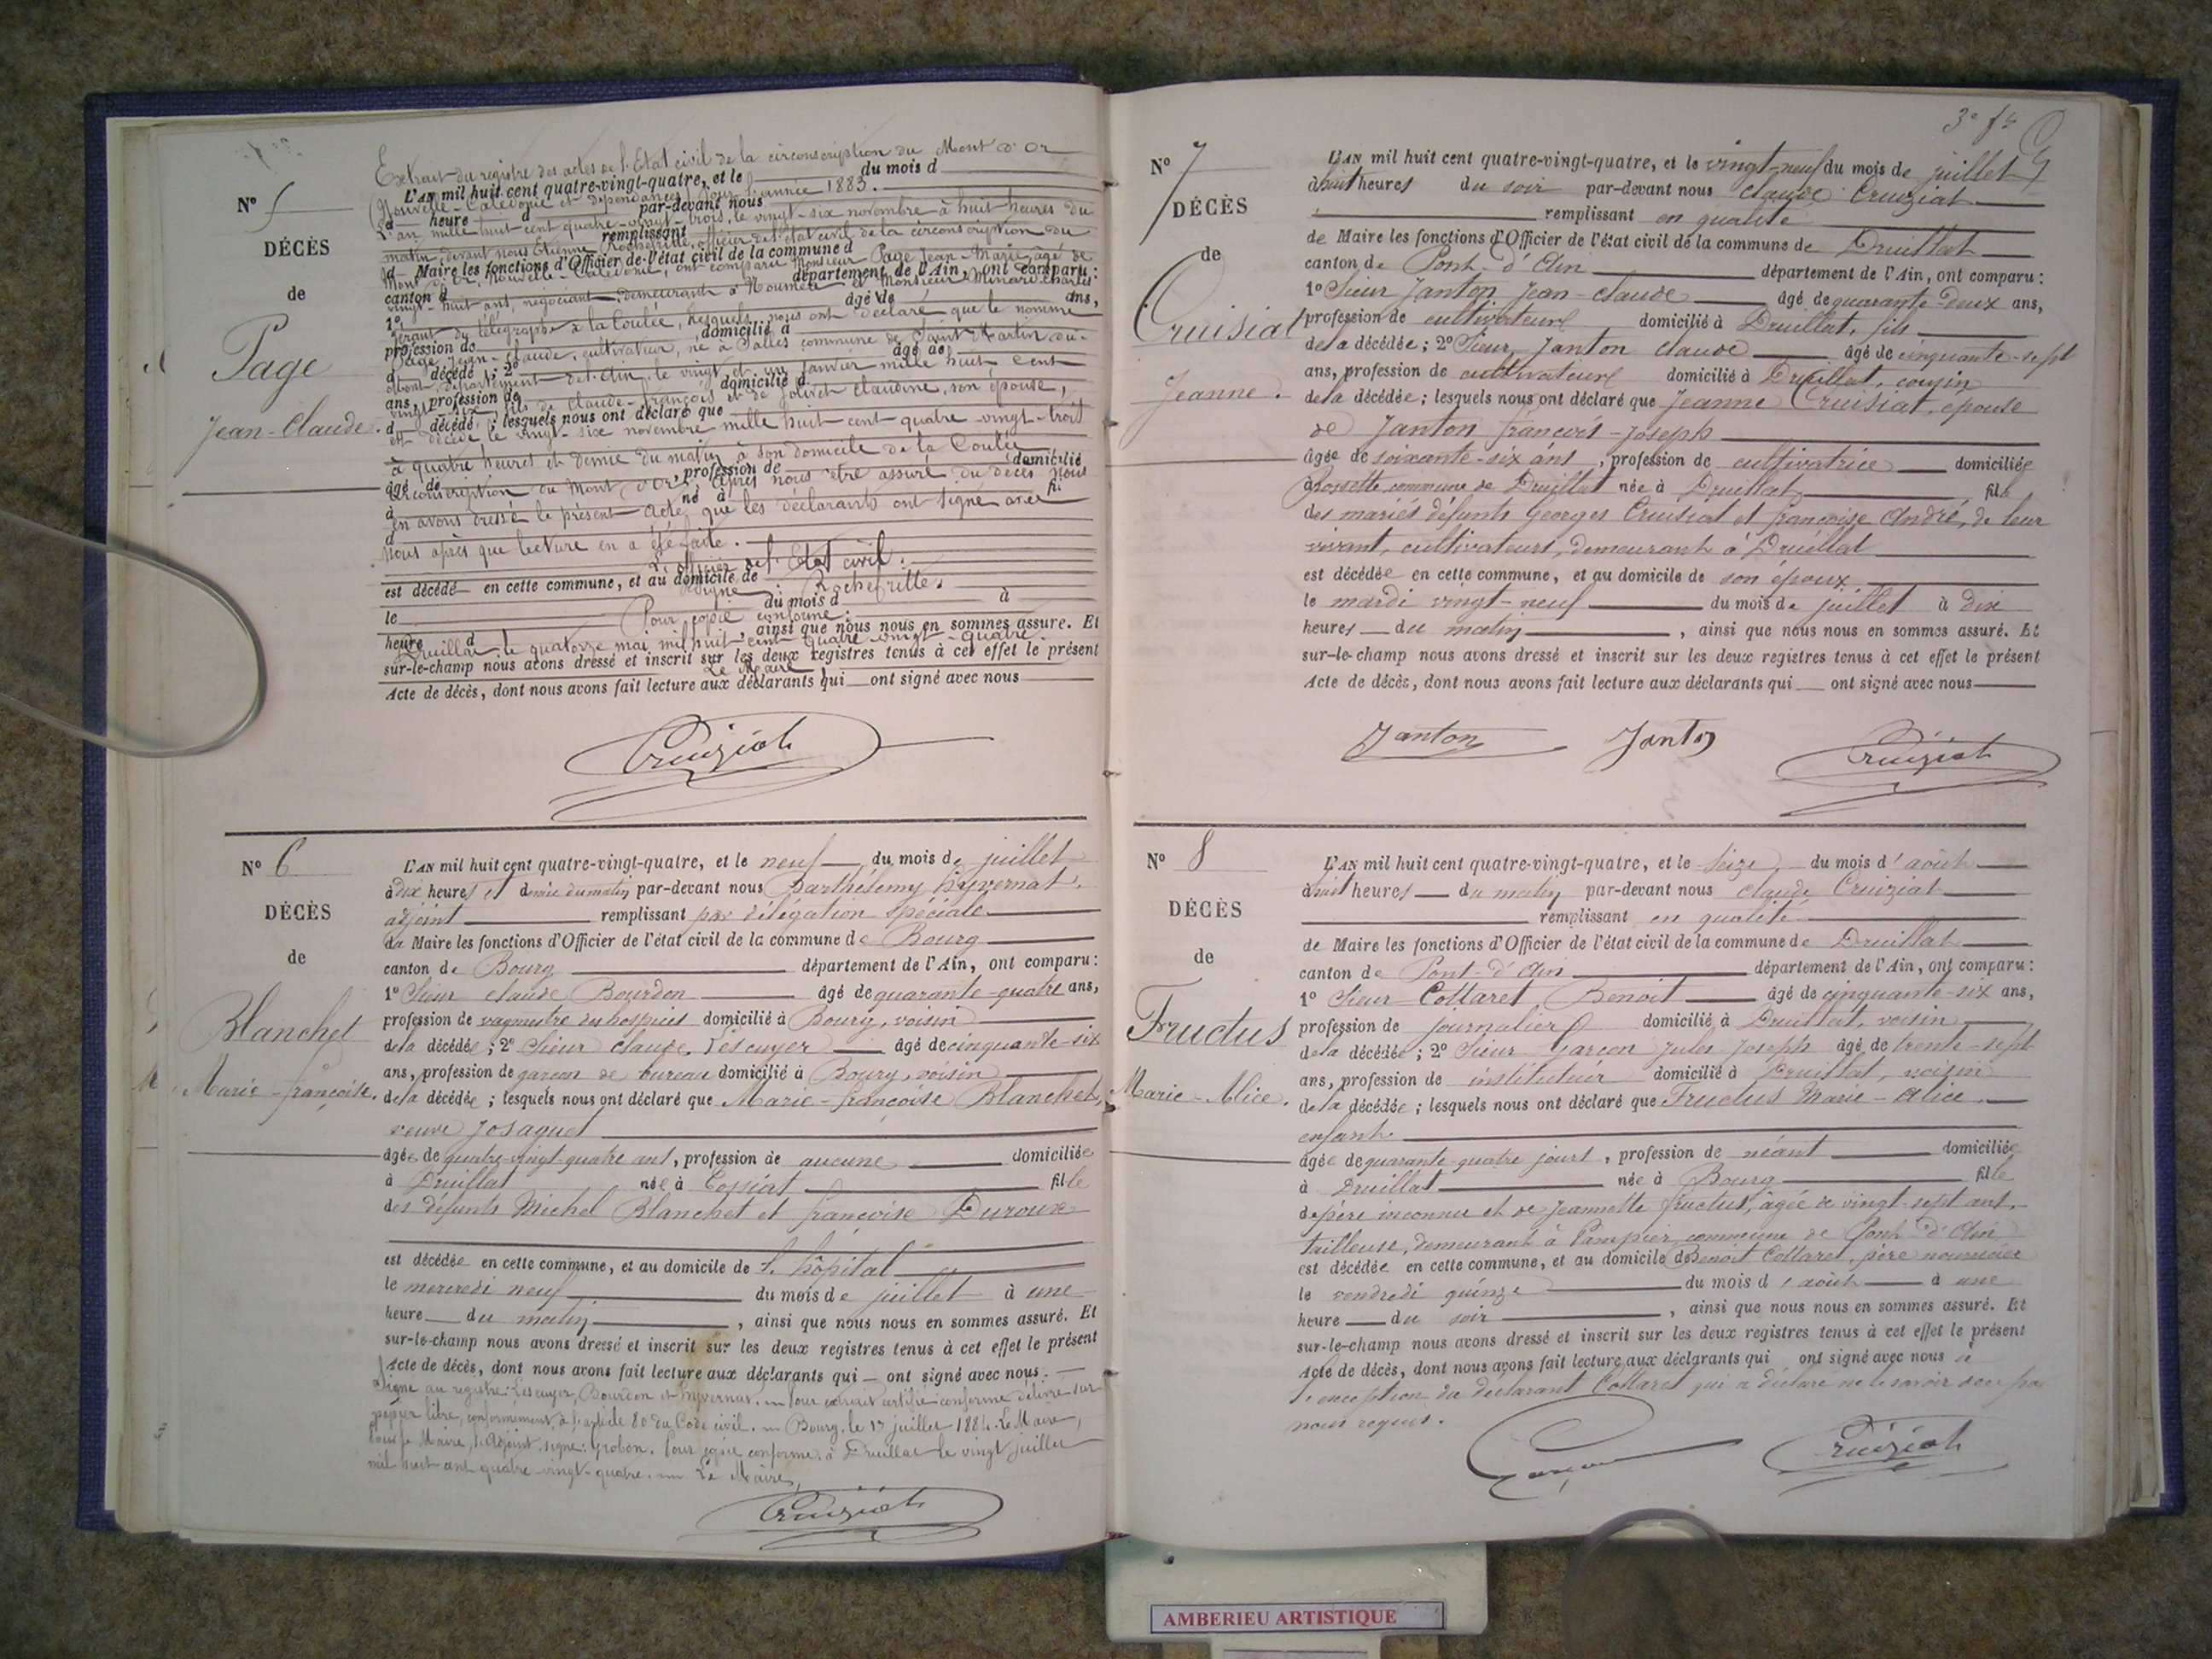 Extrait du registre des actes de l'Etat civil de la circonscription du Mont d'Or
L'AN mil huit cent quatre-vingt-quatre, et le du mois d
(Nouvelle-Calédonie et dépendances) pour l'année 1883.
N° 5
d heure d par-devant nous
L'an mille huit-cent quatre-vingt-trois, le vingt-six novembre à huit heures du
remplissant
DÉCÈS
matin, devant nous Etienne Rochefrille, officier de l'état civil de la circonscription du
d Maire les fonctions d'Officier de l'état civil de la commune d
Mont d'Or, Nouvelle-Calédonie, ont comparu Monsieur Page Jean-Marie, âgé de
canton d département de l'Ain, ont comparu:
de
vingt-huit ans, négociant, demeurant à Nouméa et Monsieur Minard Charles
1° âgé de ans,
gérant du télégraphe à la Coulée, lesquels nous ont déclaré que le nommé
profession de domicilié à
Page
Page Jean-Claude, cultivateur, né à Salles commune de Saint Martin-du-
d décédé; 2° âgé de
Mont, département de l'Ain, le vingt et un janvier mille huit cent
ans, profession de domicilié d
vingt-six, fils de Claude-François et de Jolivet Claudine, son épouse,
Jean-Claude.
d décédé; lesquels nous ont déclaré que
est décédé le vingt-six novembre mille huit-cent quatre-vingt-trois
à quatre heures et demie du matin à son domicile de la Coulée
âgé de , profession de domicilié
circonscription du Mont d'Or. Après nous être assuré du décès nous
à né à fil
en avons dressé le présent acte que les déclarants ont signé avec
d
nous après que lecture en a été faite.
L'officier de l'Etat civil:
est décédé en cette commune, et au domicile de
Signé: Rochefrille.
le du mois d à
Pour copie conforme:
heure d , ainsi que nous nous en sommes assuré. Et
Druillat le quatorze mai mil huit-cent quatre-vingt-quatre.
sur-le-champ nous avons dressé et inscrit sur les deux registres tenus à cet effet le présent
Le Maire,
Acte de décès, dont nous avons fait lecture aux déclarants qui ont signé avec nous
Cruiziat
N° 6
L'AN mil huit cent quatre-vingt-quatre, et le neuf du mois de juillet
à dix heures et demie du matin par-devant nous Barthélemy Hyvernat,
DÉCÈS
adjoint remplissant par délégation spéciale
du Maire les fonctions d'Officier de l'état civil de la commune de Bourg
de
canton de Bourg département de l'Ain, ont comparu:
1° Sieur Claude Bourdon âgé de quarante-quatre ans,
Blanchet
profession de vaguemestre des hospices domicilié à Bourg, voisin
de la décédée; 2° Sieur Claude Lescuyer âgé de cinquante-six
ans, profession de garçon de bureau domicilié à Bourg, voisin
Marie-françoise.
de la décédée; lesquels nous ont déclaré que Marie-françoise Blanchet,
veuve Josaquet
âgée de quatre-vingt-quatre ans, profession de aucune domiciliée
à Druillat née à Copiat fille
des défunts Michel Blanchet et françoise Duroux
est décédée en cette commune, et au domicile de l'hôpital
le mercredi neuf du mois de juillet à une
heure du matin, ainsi que nous nous en sommes assuré. Et
sur-le-champ nous avons dressé et inscrit sur les deux registres tenus à cet effet le présent
Acte de décès, dont nous avons fait lecture aux déclarants qui ont signé avec nous.
Signé au registre: Lescuyer, Bourdon et Hyvernat. Pour extrait certifié conforme délivré sur
papier libre, conformément à l'article 80 du Code civil. Bourg, le 17 juillet 1884. Le Maire,
Pour le Maire, l'adjoint, signé: Grobon. Pour copie conforme, à Druillat le vingt juillet
mil huit-cent quatre-vingt-quatre. Le Maire,
Cruiziat
3e ft
N° 7
L'AN mil huit cent quatre-vingt-quatre, et le vingt-neuf du mois de juillet
à huit heures du soir par-devant nous Claude Cruiziat
DÉCÈS
remplissant en qualité
de Maire les fonctions d'Officier de l'état civil de la commune de Druillat
de
canton de Pont-d'Ain département de l'Ain, ont comparu:
1° Sieur Janton Jean-Claude âgé de quarante-deux ans,
Cruisiat
profession de cultivateur domicilié à Druillat, fils
de la décédée; 2° Sieur Janton Claude âgé de cinquante-sept
ans, profession de cultivateur domicilié à Druillat, cousin
Jeanne.
de la décédée; lesquels nous ont déclaré que Jeanne Cruisiat, épouse
de Janton françois-Joseph
âgée de soixante-six ans, profession de cultivatrice domiciliée
à Rossette commune de Druillat née à Druillat fille
des mariés défunts Georges Cruisiat et françoise André, de leur
vivant, cultivateurs, demeurant à Druillat
est décédée en cette commune, et au domicile de son époux
le mardi vingt-neuf du mois de juillet à dix
heures du matin, ainsi que nous nous en sommes assuré. Et
sur-le-champ nous avons dressé et inscrit sur les deux registres tenus à cet effet le présent
Acte de décès, dont nous avons fait lecture aux déclarants qui ont signé avec nous
Janton Janton Cruiziat
N° 8
L'AN mil huit cent quatre-vingt-quatre, et le seize du mois d'août
à huit heures du matin par-devant nous Claude Cruiziat
DÉCÈS
remplissant en qualité
de Maire les fonctions d'Officier de l'état civil de la commune de Druillat
de
canton de Pont-d'Ain département de l'Ain, ont comparu:
1° Sieur Collaret Benoit âgé de cinquante-six ans,
Fructus
profession de journalier domicilié à Druillat, voisin
de la décédée; 2° Sieur Garçon Jules Joseph âgé de trente-sept
ans, profession de instituteur domicilié à Druillat, voisin
Marie-Alice.
de la décédée; lesquels nous ont déclaré que Fructus Marie-Alice
enfant
âgée de quarante-quatre jours, profession de néant domiciliée
à Druillat née à Bourg fille
de père inconnu et de Jeannette fructus, âgée de vingt-sept ans,
tailleuse, demeurant à Pampier commune de Pont-d'Ain
est décédée en cette commune, et au domicile de Benoit Collaret, père nourricier
le vendredi quinze du mois d'août à une
heure du soir, ainsi que nous nous en sommes assuré. Et
sur-le-champ nous avons dressé et inscrit sur les deux registres tenus à cet effet le présent
Acte de décès, dont nous avons fait lecture aux déclarants qui ont signé avec nous à
l'exception du déclarant Collaret qui a déclaré ne le savoir de ce par
nous requis.
Garçon Cruiziat
AMBERIEU ARTISTIQUE